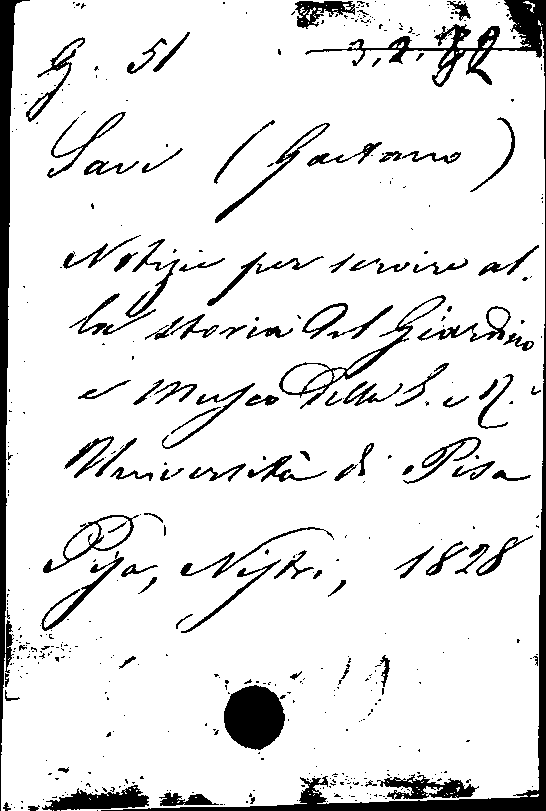 G. 51 3.2.
Savi (Gaetano)
Notizie per servire al-
la storia del Giardino
e Museo della I. e R.
Università di Pisa
Pisa, Nistri, 1828